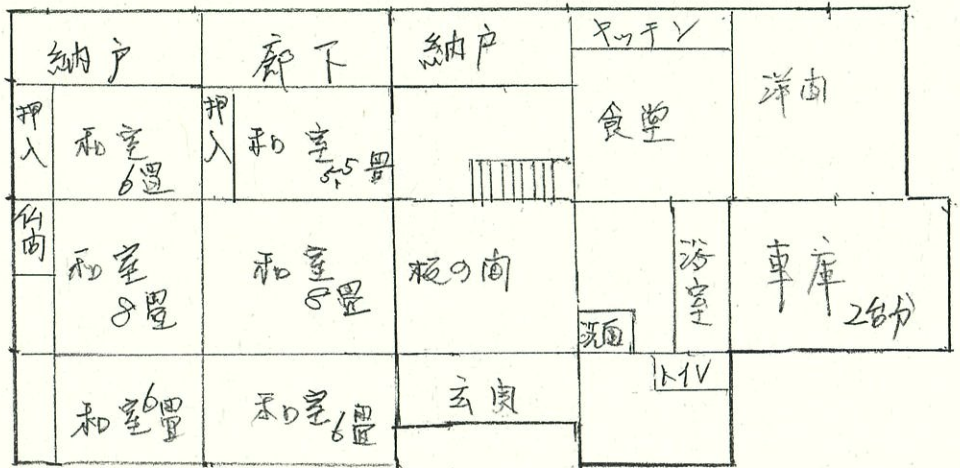 納戸
廊下
納戸
キッチン
洋間
押入
和室
6畳
押入
和室
5,5畳
食堂
仏間
和室
8畳
和室
8畳
板の間
浴室
車庫
2台分
洗面
トイレ
和室6畳
和室6畳
玄関